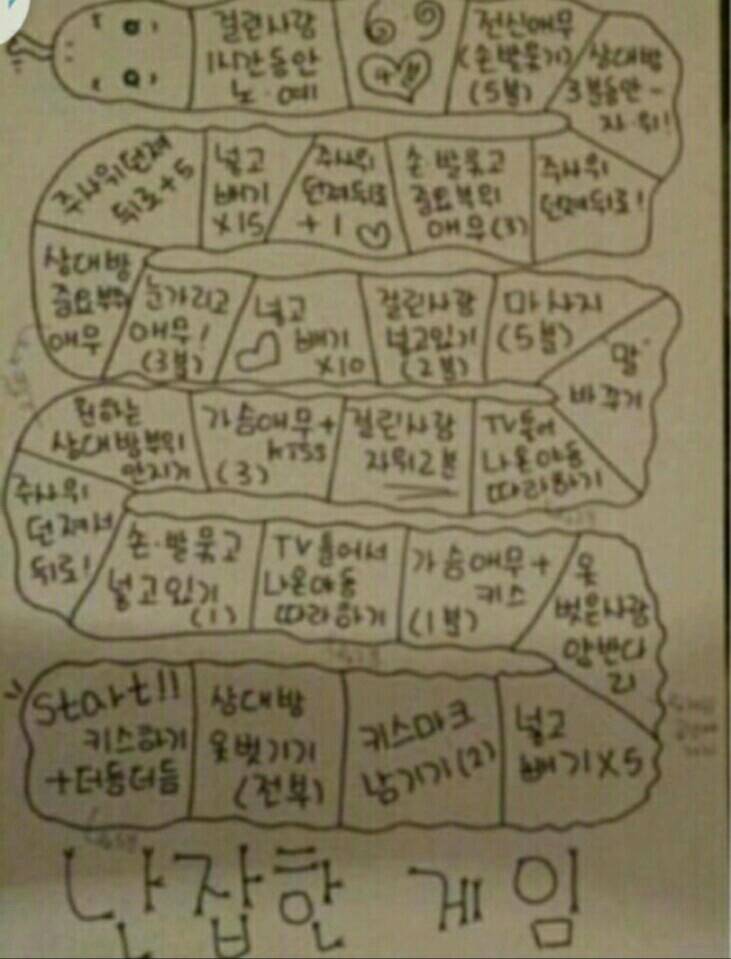 걸린사람
1시간동안
노·예
69
전신애무
(손발묶기)
(5분)
상대방
3분동안-
자·위!
주사위던져
뒤로+5
넣고
빼기
X15
주사위
던져뒤로
+1
손·발묶고
중요부위
애무(3)
주사위
던져뒤로!
상대방
중요부위
애무
눈가리고
애무!
(3분)
넣고
빼기
X10
걸린사람
넣고있기
(2분)
마사지
(5분)
"말"
바꾸기
원하는
상대방부위
만지기
가슴애무+
kiss
(3)
걸린사람
자위2분
TV틀어
나온야동
따라하기
주사위
던져서
뒤로!
손·발묶고
넣고있기
(1)
TV틀어서
나온야동
따라하기
가슴애무+
키스
(1분)
옷
벗은사람
앞반다
리
Start!!
키스하기
+더듬더듬
상대방
옷벗기기
(전부)
키스마크
남기기(2)
넣고
빼기X5
난잡한 게임